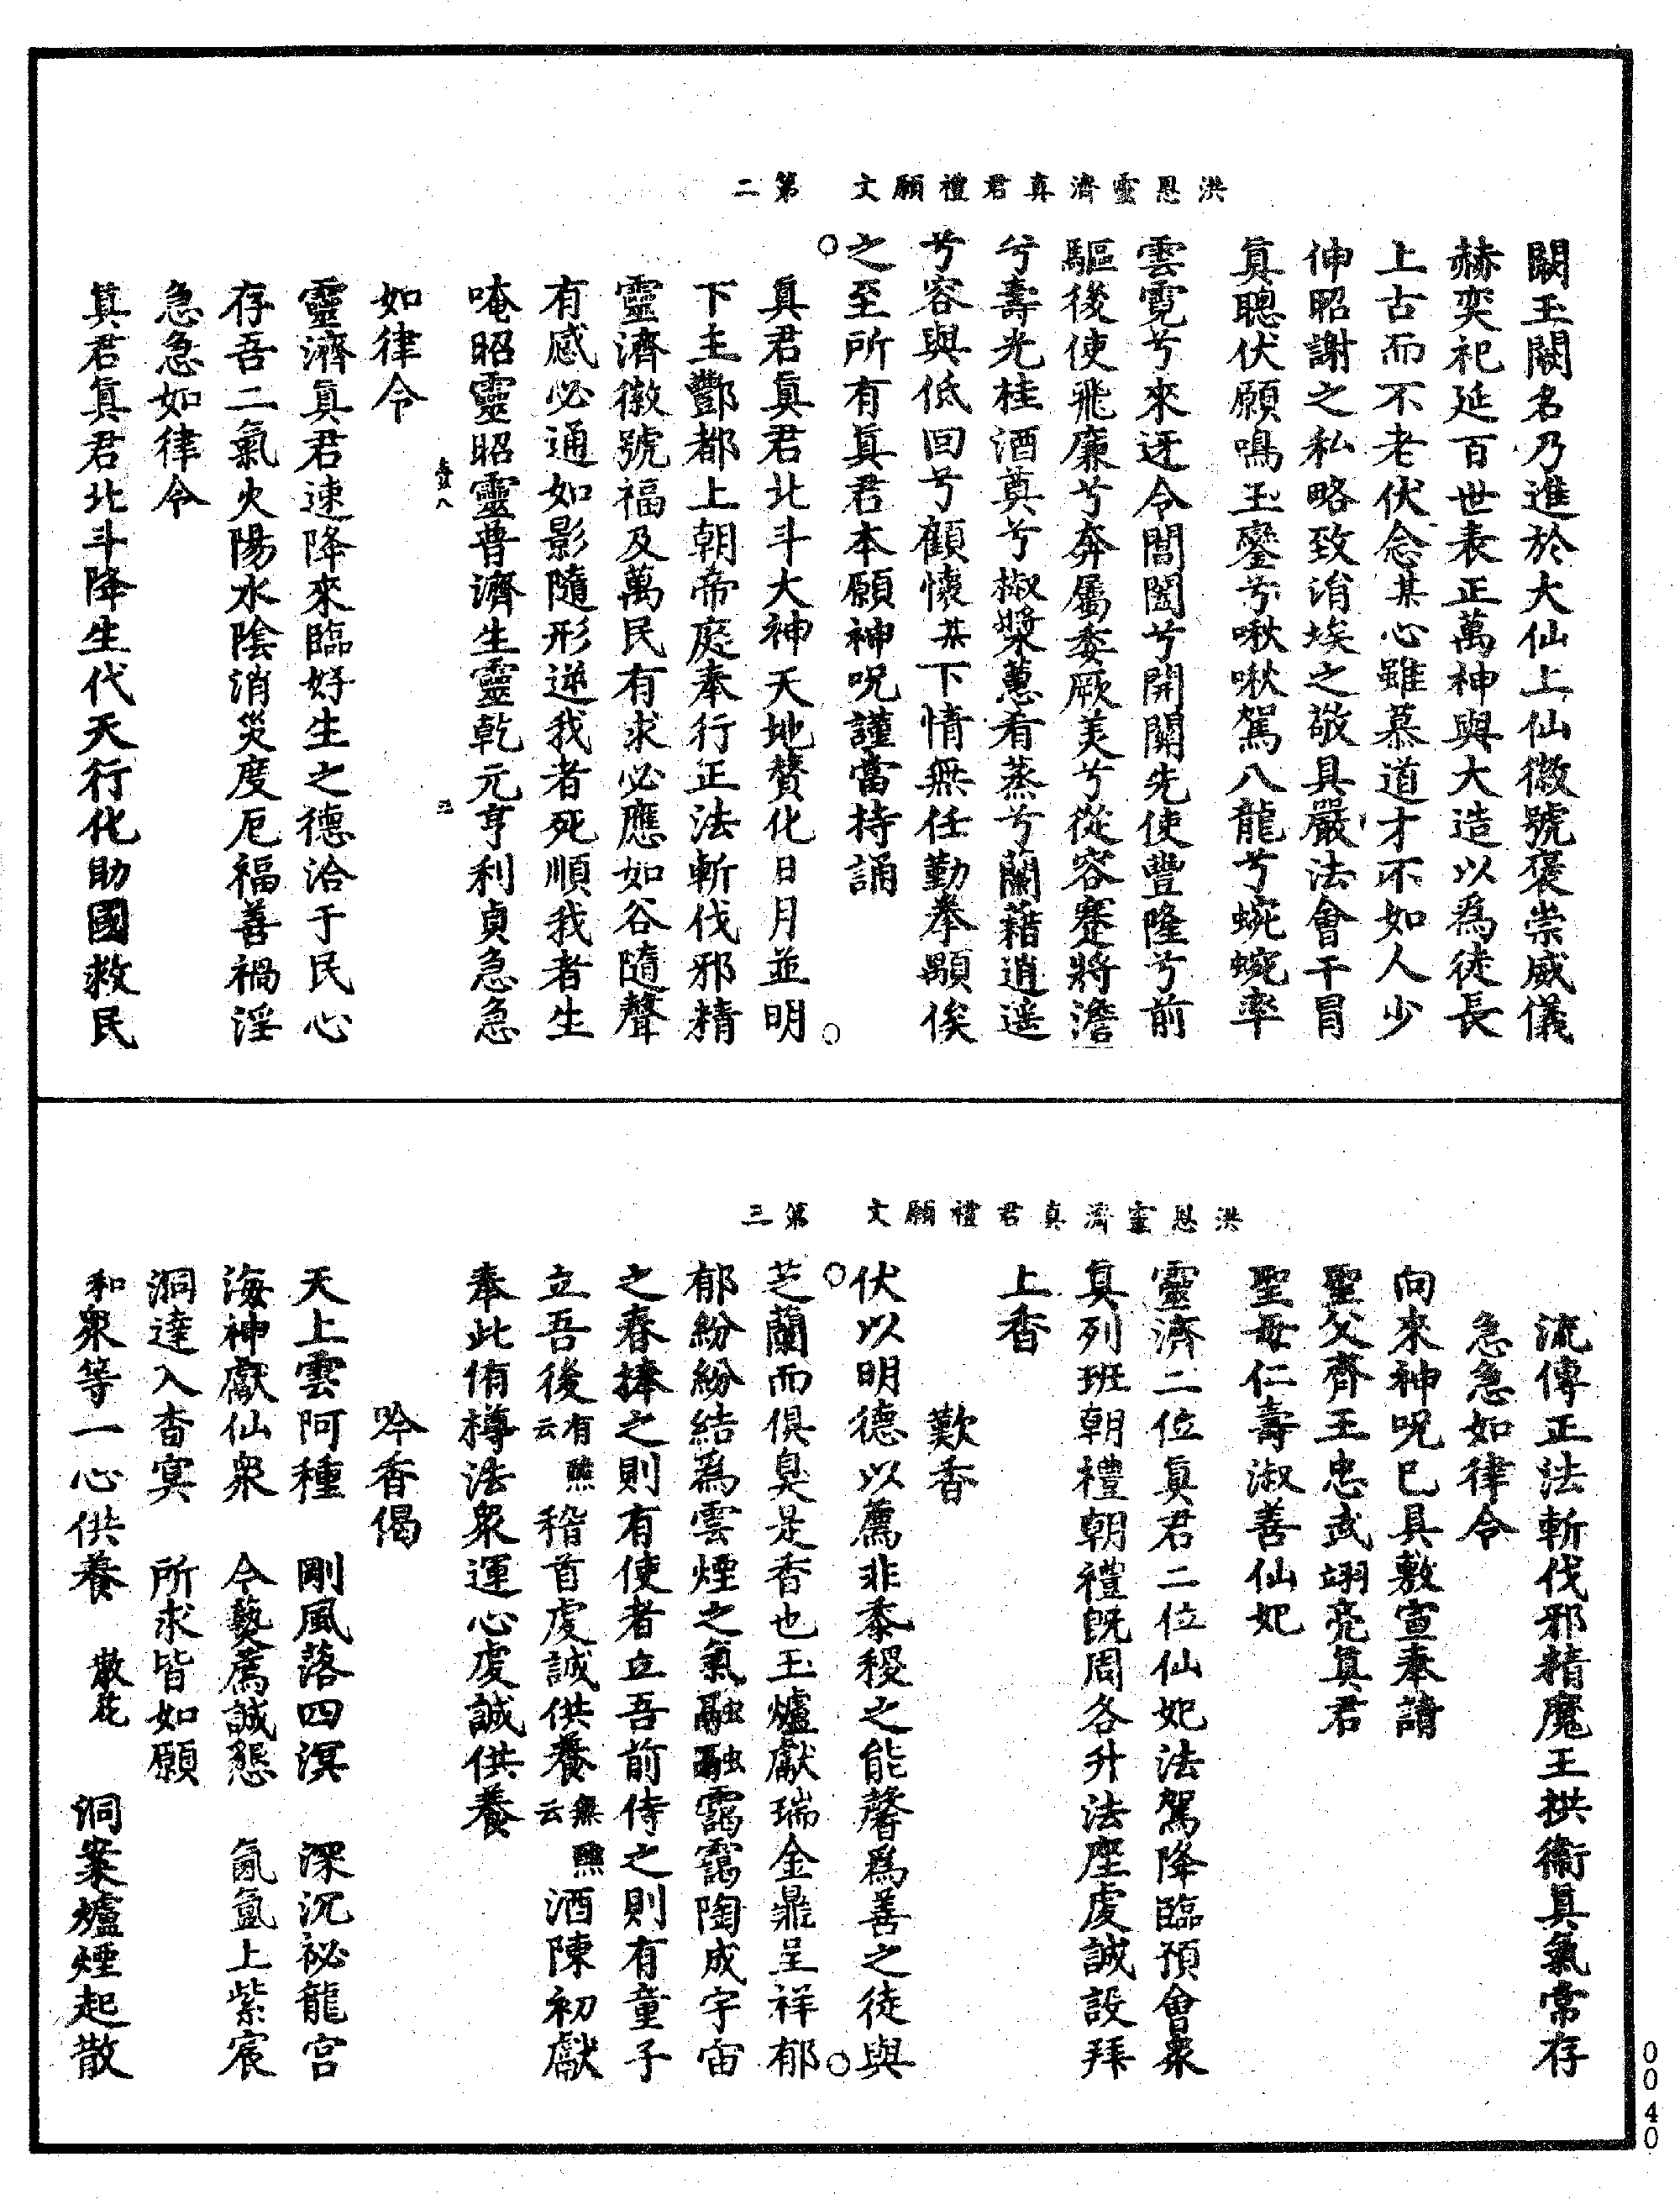 洪恩靈濟真君禮願文　第二
闕玉闕名乃進於大仙上仙徽號褒崇威儀
赫奕祀延百世表正萬神與大造以爲徒長
上古而不老伏念某心雖慕道才不如人少
伸昭謝之私略致涓埃之敬具嚴法會干冒
眞聰伏願鳴玉鑾兮啾啾駕八龍兮蜿蜿率
雲霓兮來迓令閶闔兮開關先使豐隆兮前
驅後使飛廉兮奔屬委厥美兮從容蹇將澹
兮壽光桂酒奠兮椒漿蕙肴蒸兮蘭藉逍遥
兮容與低回兮顧懷某下情無任勤拳顒俟
之至所有眞君本願神呪謹當持誦
眞君眞君北斗大神天地贊化日月並明
下主酆都上朝帝庭奉行正法斬伐邪精
靈濟徽號福及萬民有求必應如谷隨聲
有感必通如影隨形逆我者死順我者生
唵昭靈昭靈普濟生靈乾元亨利貞急急
如律令
靈濟眞君速降來臨好生之德洽于民心
存吾二氣火陽水陰消災度厄福善禍淫
急急如律令
眞君眞君北斗降生代天行化助國救民
洪恩靈濟真君禮願文　第三
流傳正法斬伐邪精魔王拱衞眞氣常存
急急如律令
向來神呪已具敷宣奉請
聖父齊王忠武翊亮眞君
聖母仁壽淑善仙妃
靈濟二位眞君二位仙妃法駕降臨預會衆
眞列班朝禮朝禮既周各升法座虔誠設拜
上香
歎香
伏以明德以薦非黍稷之能馨爲善之徒與
芝蘭而俱臭是香也玉爐獻瑞金鼎呈祥郁
郁紛紛結爲雲煙之氣融融靄靄陶成宇宙
之春捧之則有使者立吾前侍之則有童子
立吾後有醮云稽首虔誠供養無醮云酒陳初獻
奉此侑樽法衆運心虔誠供養
吟香偈
天上雲阿種　剛風落四溟　深沉祕龍宮
海神獻仙衆　今爇薦誠懇　氤氳上紫宸
洞達入杳冥　所求皆如願
和衆等一心供養　散花　洞案爐煙起散
0040